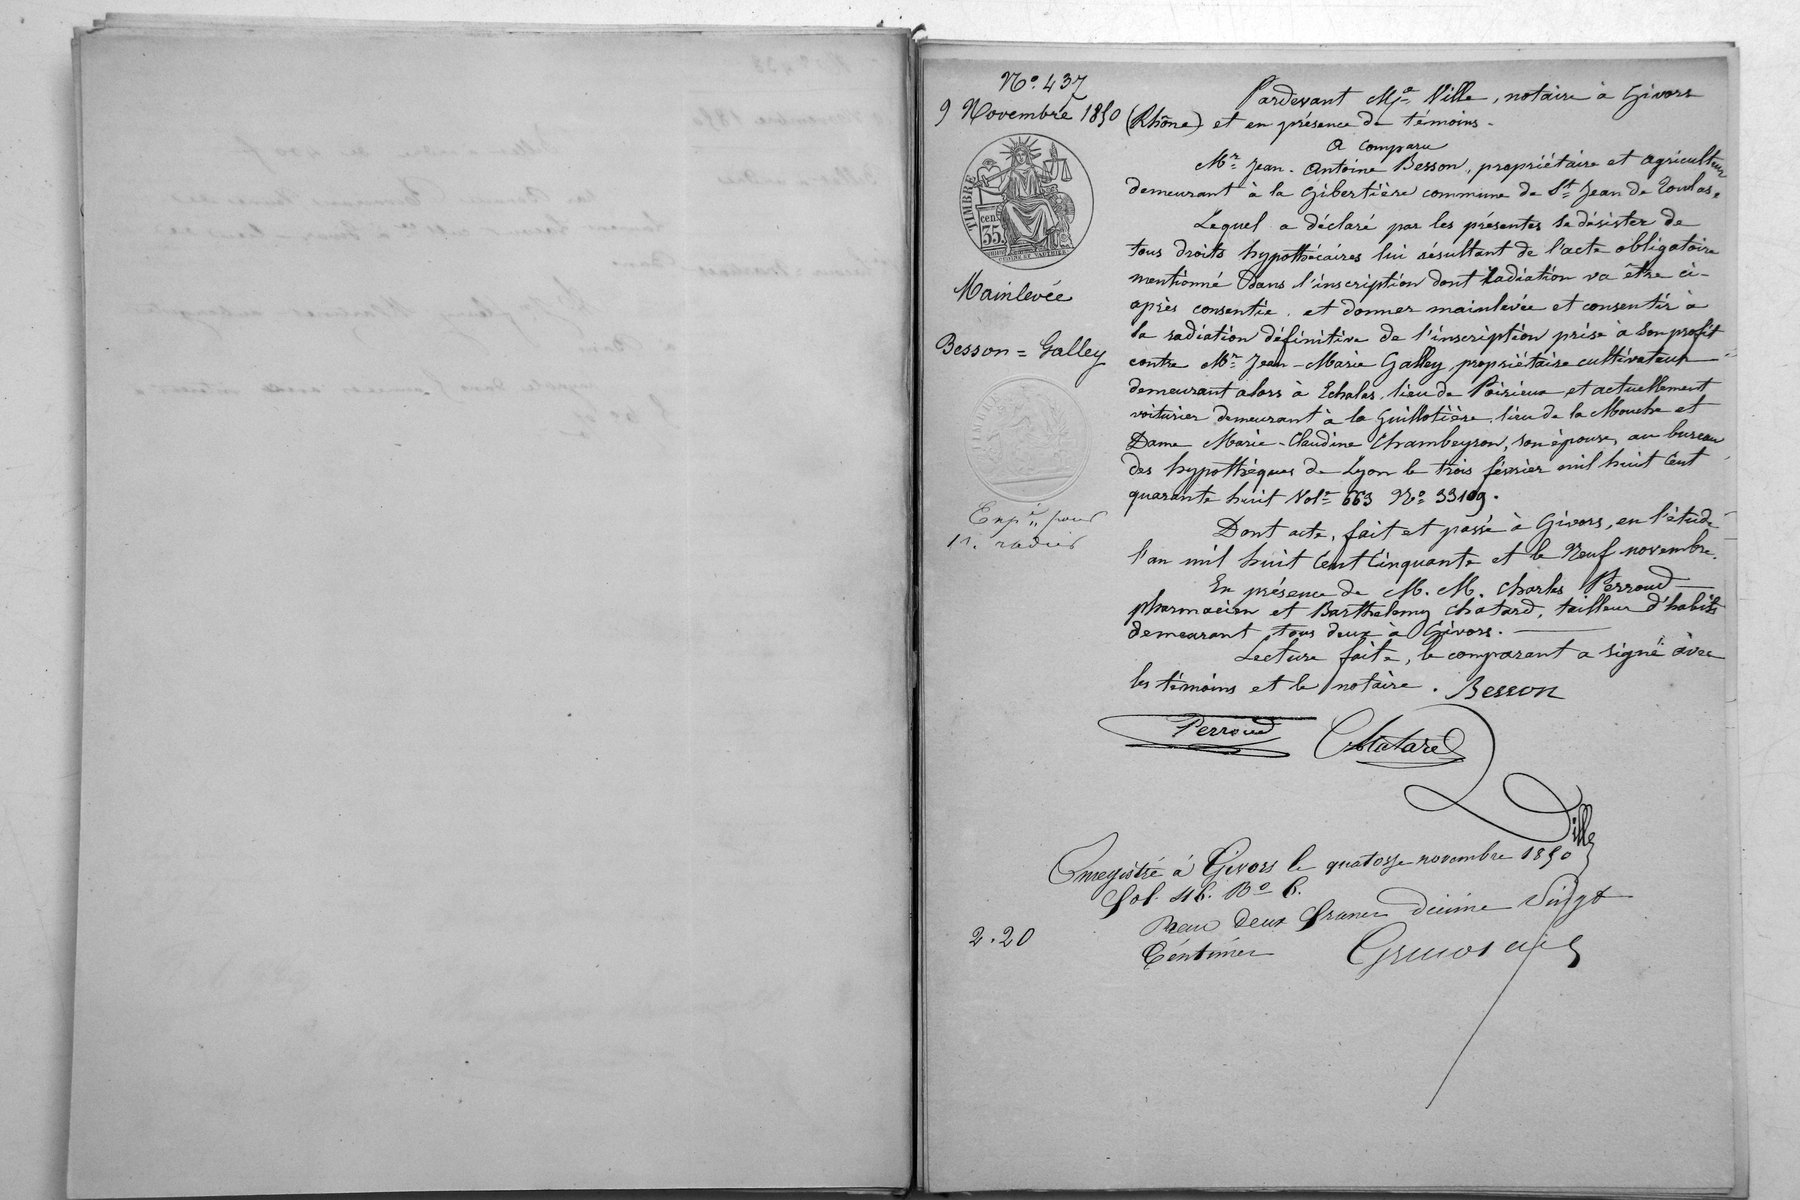 Nº. 437
9 Novembre 1850
TIMBRE
cent.
35.
Mainlevée
Besson = Galley
Expé. pour
radier
Pardevant Me. Ville, notaire à Givors
(Rhône) et en présence de témoins.
A comparu
Mr. Jean-Antoine Besson, propriétaire et agriculteur
demeurant à la Gibertière commune de St. Jean de Toulas.
Lequel a déclaré par les présentes se désister de
tous droits hypothécaires lui résultant de l'acte obligatoire
mentionné dans l'inscription dont radiation va être ci-
après consentie, et donner mainlevée et consentir à
la radiation définitive de l'inscription prise à son profit
contre Mr. Jean-Marie Galley, propriétaire cultivateur
demeurant alors à Echalas, lieu de Poirieux et actuellement
voiturier demeurant à la Guillotière, lieu de la Mouche et
Dame Marie-Claudine Chambeyron, son épouse, au bureau
des hypothèques de Lyon le trois février mil huit Cent
quarante huit Vole. 663 Nº 33109.
Dont acte, fait et passé à Givors, en l'étude
l'an mil huit Cent Cinquante et le Neuf novembre.
En présence de M. M. Charles Perroud
pharmacien et Barthelemy Chatard, tailleur d'habits
demeurant tous deux à Givors.
Lecture faite, le comparant a signé avec
les témoins et le notaire. Besson
Perroud Chatard
Ville
Enregistré à Givors le quatorze novembre 1850
fol. 46. Rº 6.
Reçu deux francs décime vingt
2.20
Centimes